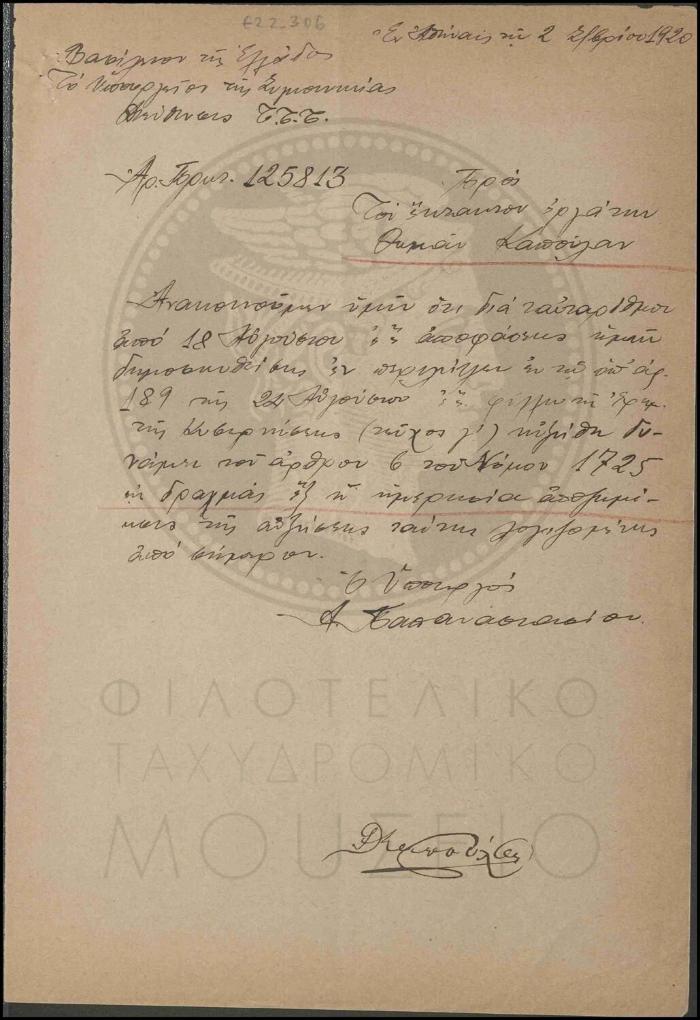 E22_306
Ἐν Ἀθήναις τῇ 2 Σ/βρίου 1920
Βασίλειον τῆς Ἑλλάδος
Τὸ Ὑπουργεῖον τῆς Συγκοινωνίας
Διεύθυνσις Τ.Τ.Τ.
Ἀρ. Πρωτ. 125813
Πρὸς
Τὸν ἔκτακτον ἐργάτην
Θωμᾶν
Ἀνακοινοῦμεν ὑμῖν ὅτι διὰ ταὐταρίθμου
ἀπὸ 18 Αὐγούστου ἔ.ἔ. ἀποφάσεως ἡμῶν
δημοσιευθείσης ἐν περιλήψει ἐν τῷ ὑπ' ἀρ.
189 τῆς 22 Αὐγούστου ἔ.ἔ. φύλλῳ τῆς Ἐφημ.
τῆς Κυβερνήσεως (τεῦχος γ') ηὐξήθη δυ-
νάμει τοῦ ἄρθρου 6 τοῦ Νόμου 1725
εἰς δραχμὰς ἓξ ἡ ἡμερησία ἀποζημί-
ωσις τῆς αὐξήσεως ταύτης λογιζομένης
ἀπὸ σήμερον.
Ὁ Ὑπουργός
Α. Παπαναστασίου
ΦΙΛΟΤΕΛΙΚΟ
ΤΑΧΥΔΡΟΜΙΚΟ
ΜΟΥΣΕΙΟ